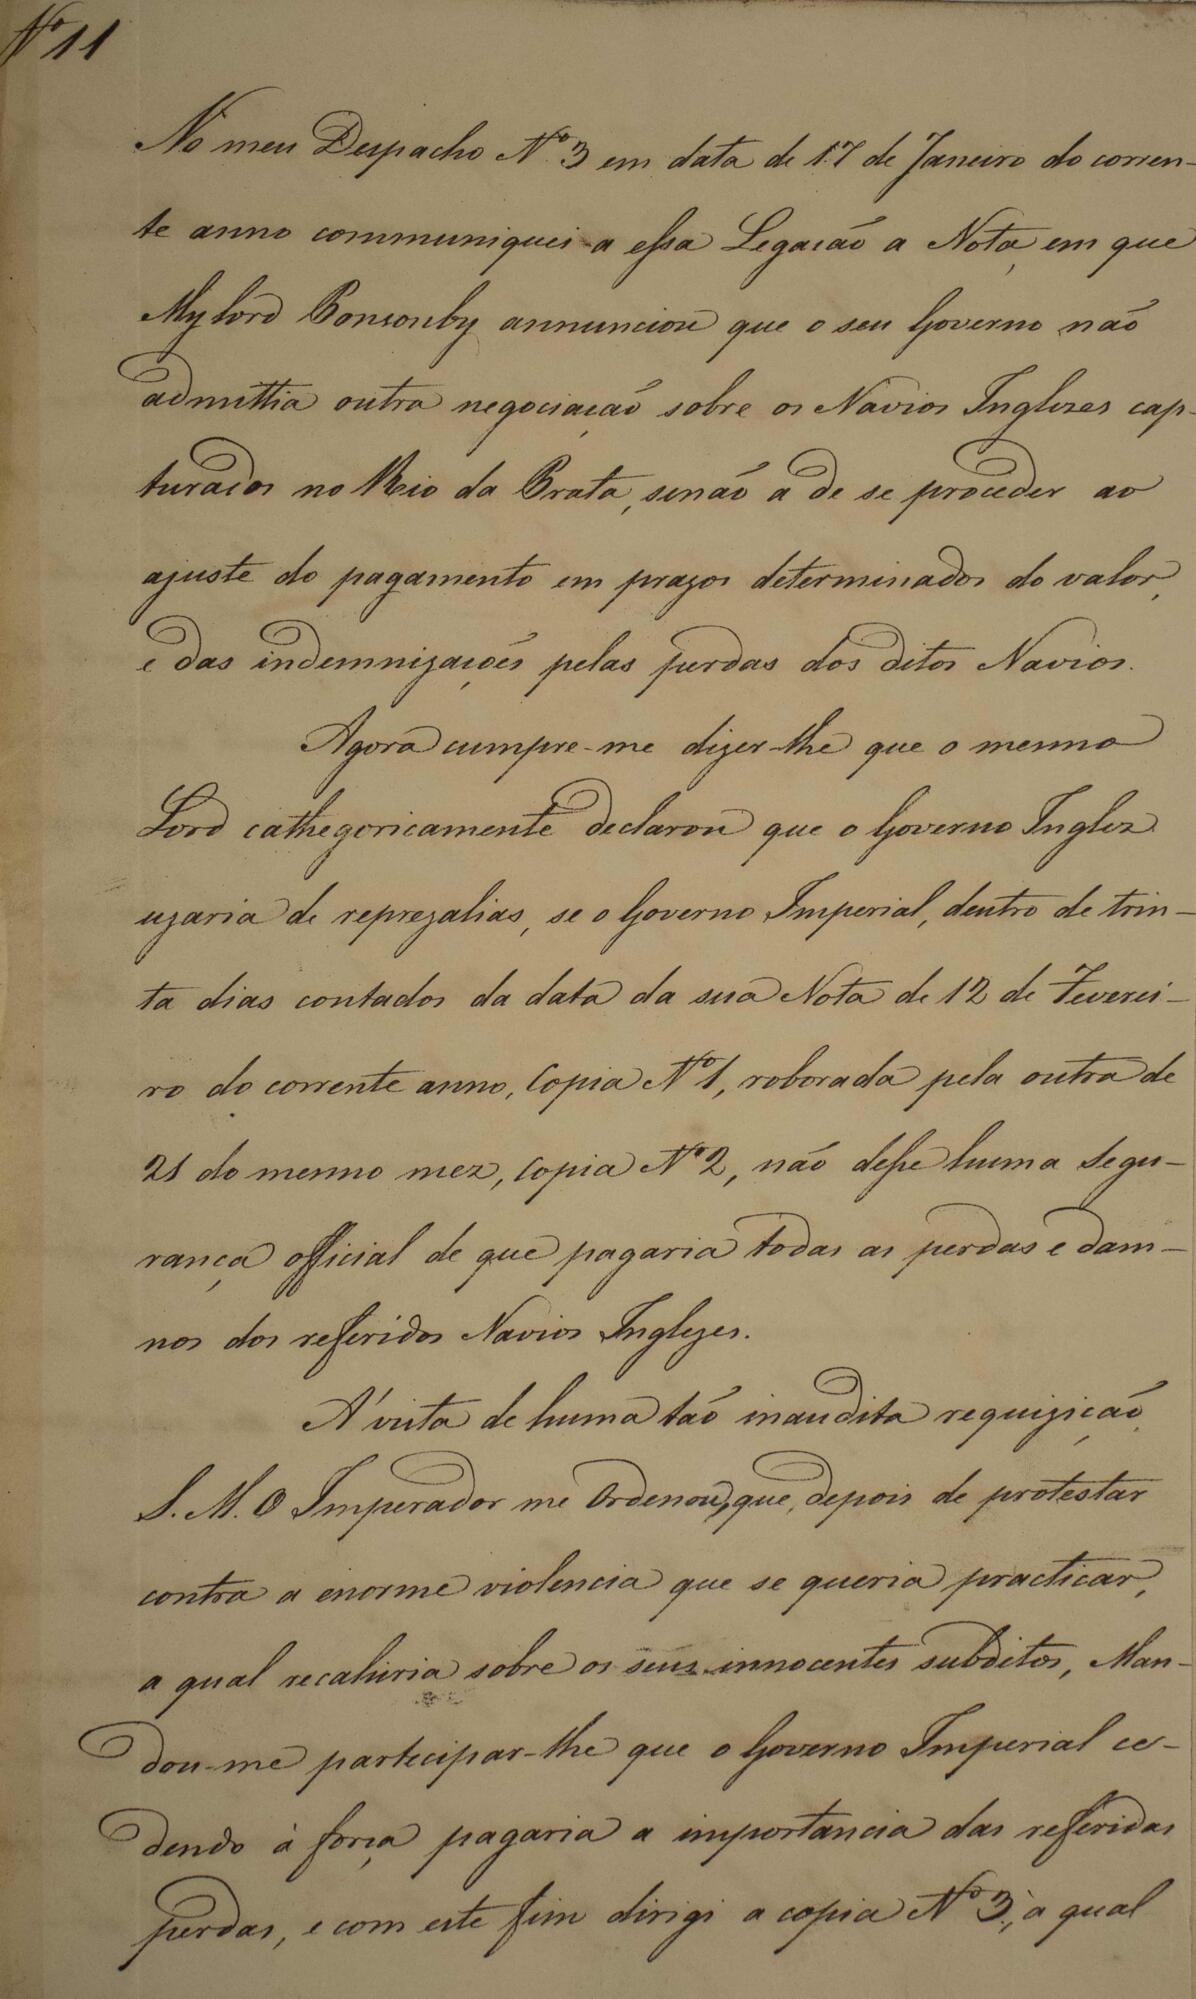 Nº 11
No meu Despacho Nº 3 em data de 17 de Janeiro do corren-
te anno communiquei a essa Legação a Nota, em que
Mylord Ponsonby annunciou que o seu Governo não
admittia outra negociação sobre os Navios Inglezes cap-
turados no Rio da Prata, senão a de se proceder ao
ajuste do pagamento em prazos determinados do valor,
e das indemnizações pelas perdas dos ditos Navios.
Agora cumpre-me dizer-lhe que o mesmo
Lord cathegoricamente declarou que o Governo Inglez
uzaria de reprezalias, se o Governo Imperial, dentro de trin-
ta dias contados da data da sua Nota de 12 de Feverei-
ro do corrente anno, Copia Nº 1, roborada pela outra de
21 do mesmo mez, Copia Nº 2, não desse huma segu-
rança official de que pagaria todas as perdas e dam-
nos dos referidos Navios Inglezes.
A' vista de huma tão inaudita requizição,
S. M. O Imperador me Ordenou, que, depois de protestar
contra a enorme violencia que se queria practicar,
a qual recahiria sobre os seus innocentes subditos, Man-
dou-me partecipar-lhe que o Governo Imperial ce-
dendo à força pagaria a importancia das referidas
perdas, e com este fim dirigi a copia Nº 3, a qual